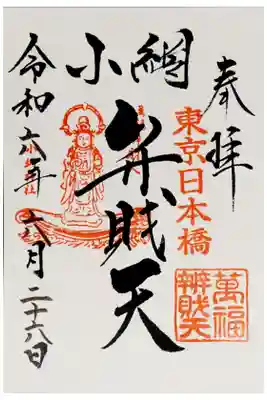 奉拝
東京日本橋
萬福
辨財天
小網
弁財天
令和六年
六月二十六日